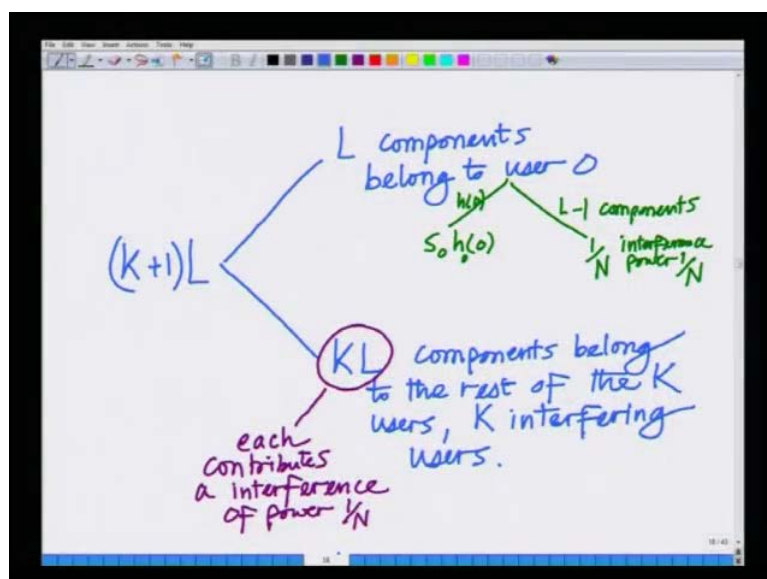 File Edit View Insert Actions Tools Help
L components
belong to user 0
h(0)
S₀ h₀(0)
L-1 components
1/N interference
power 1/N
(K+1)L
KL components belong
to the rest of the K
users, K interfering
users.
each
contributes
a interference
of power 1/N